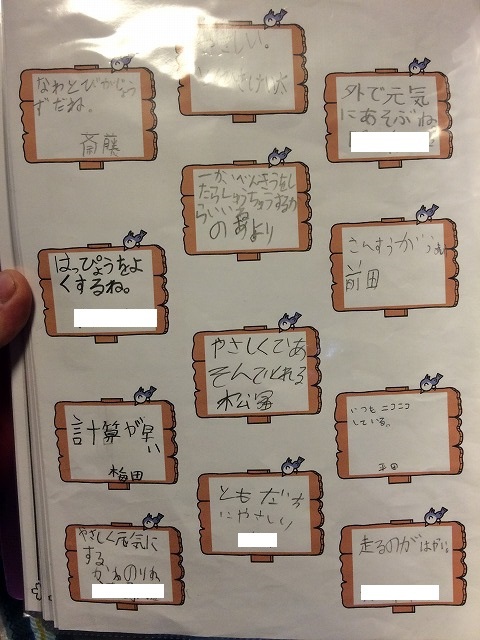 なわとびがじょう
ずだね。
斎藤
しい。
外で元気
にあそぶね
一かいべんきょうをし
たらしゅうちゅうするか
らいいね
のあより
はっぴょうをよ
くするね。
さんすうが
前田
やさしくてあ
そんでくれる
松冨
計算が早
い
梅田
いつもニコニコ
している。
平田
ともだち
にやさしい
やさしく元気に
する
走るのがはやい。